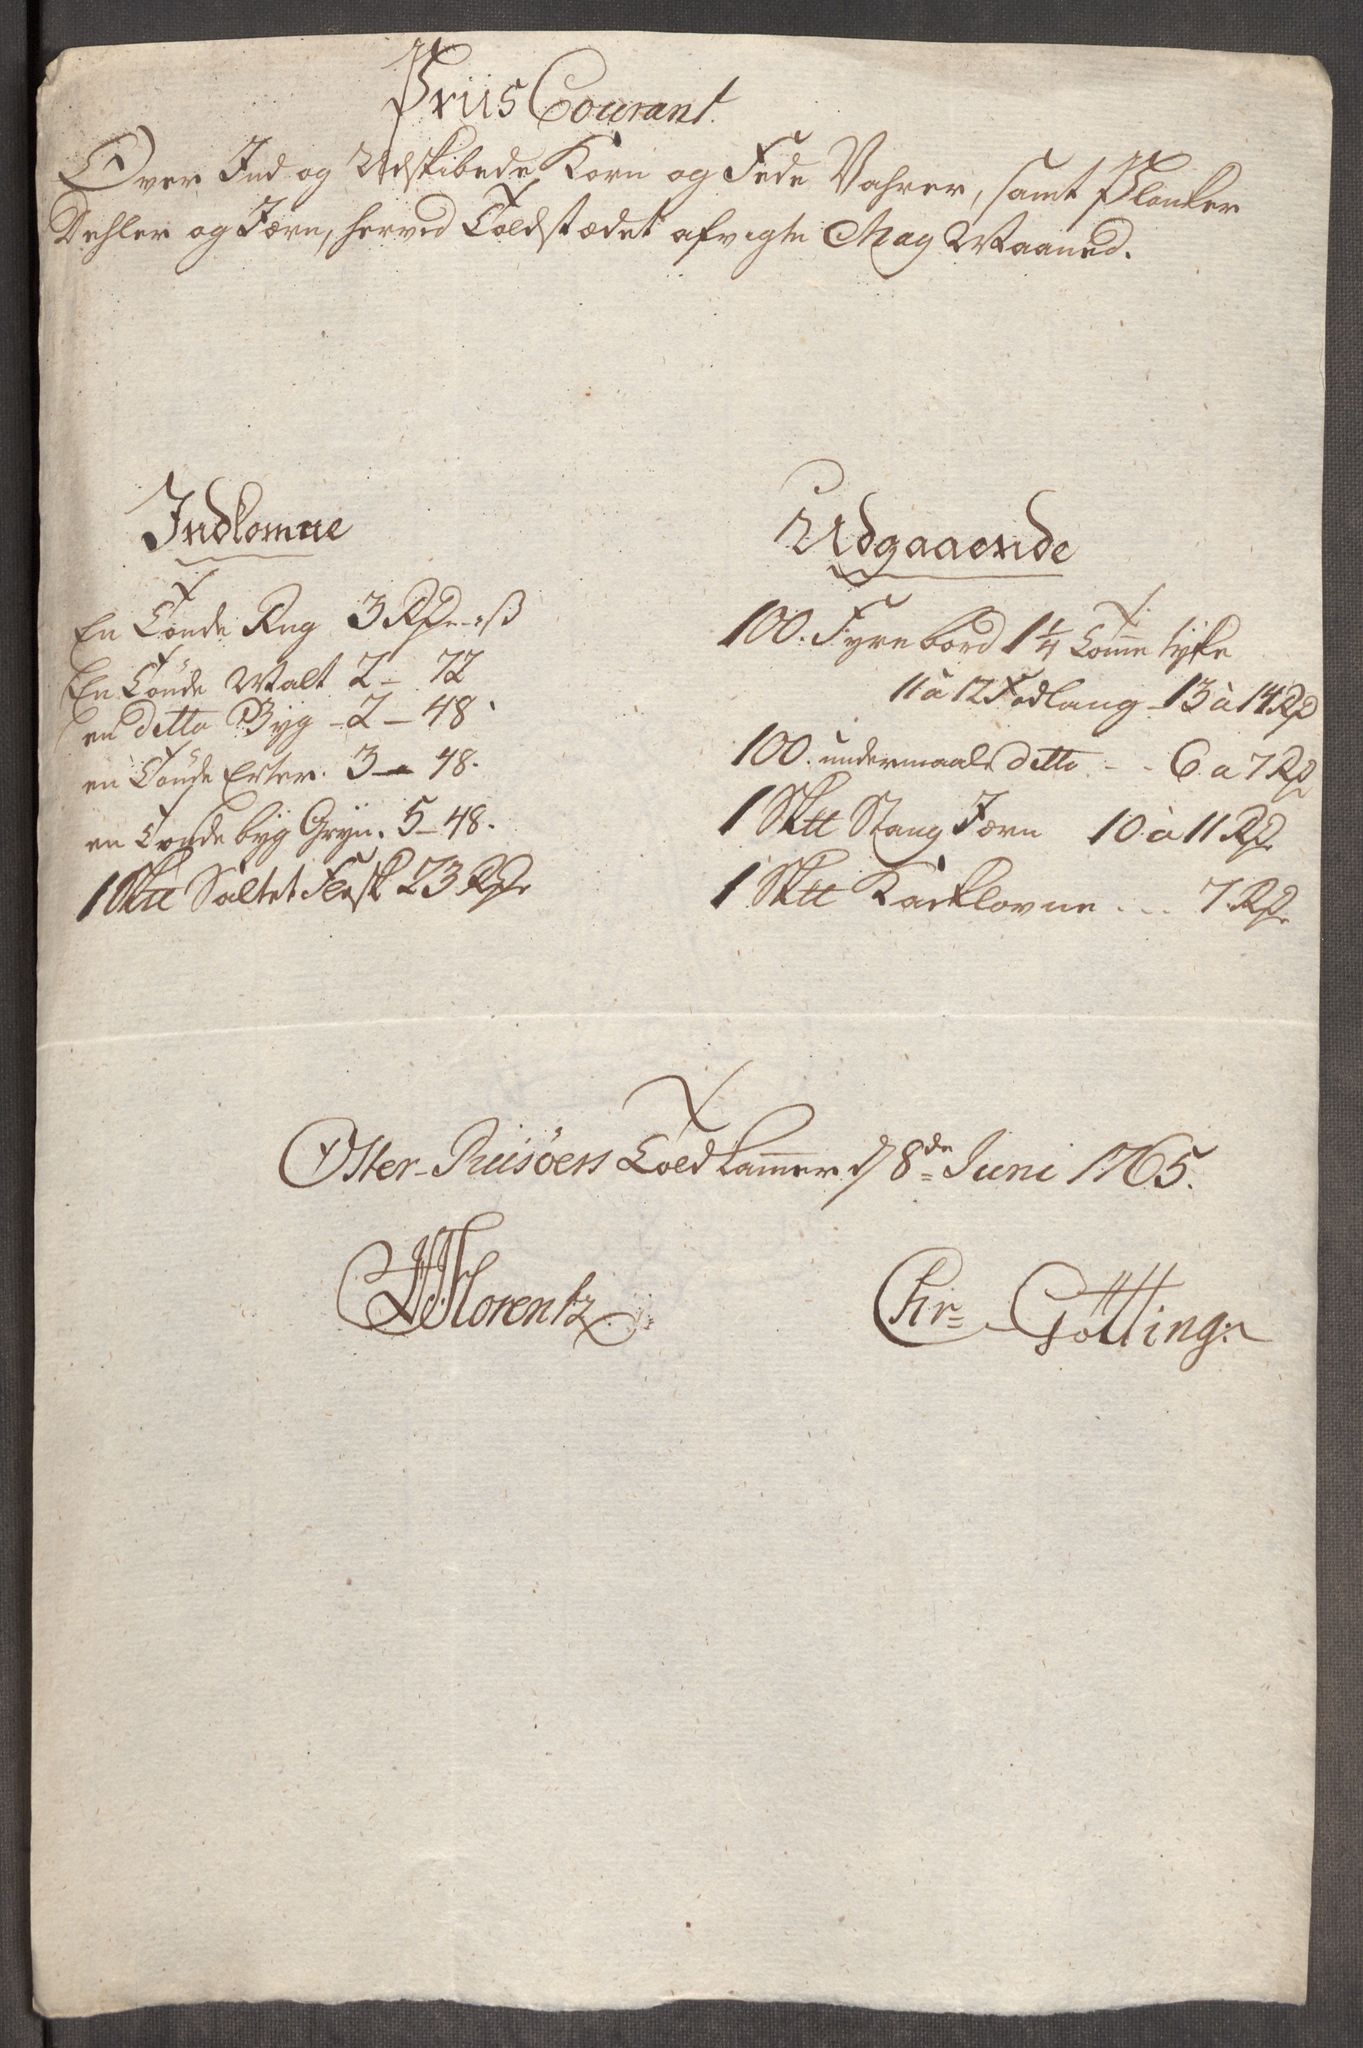 Priis Courant
Over Ind og Udskibede Korn og Fede Vahrer, samt Planker
Dehler og Jærn, herved Toldstædet afvigte May Maaned.
Indkomne
En Tønde Rug 3 Rd - ß
En Tønde Malt 2 - 72
en ditto Byg - 2 - 48.
en Tønde Erter. 3 - 48.
en Tønde byg Gryn. 5 - 48.
1 Sk℔ Saltet Flesk 23 Rd
Udgaaende
100. Fyrebord 1¼ Tomme tykke
11 à 12 Fod lang - 13 à 14 Rd
100. undermaals ditto - - 6 a 7 Rd
1 Sk℔ Stang Jærn 10 à 11 Rd
1 Sk℔ Kackelovne ... 7 Rd
Oster-Riisöers Toldkammer d 8de Juni 1765.
Florentz
Chr= Götting